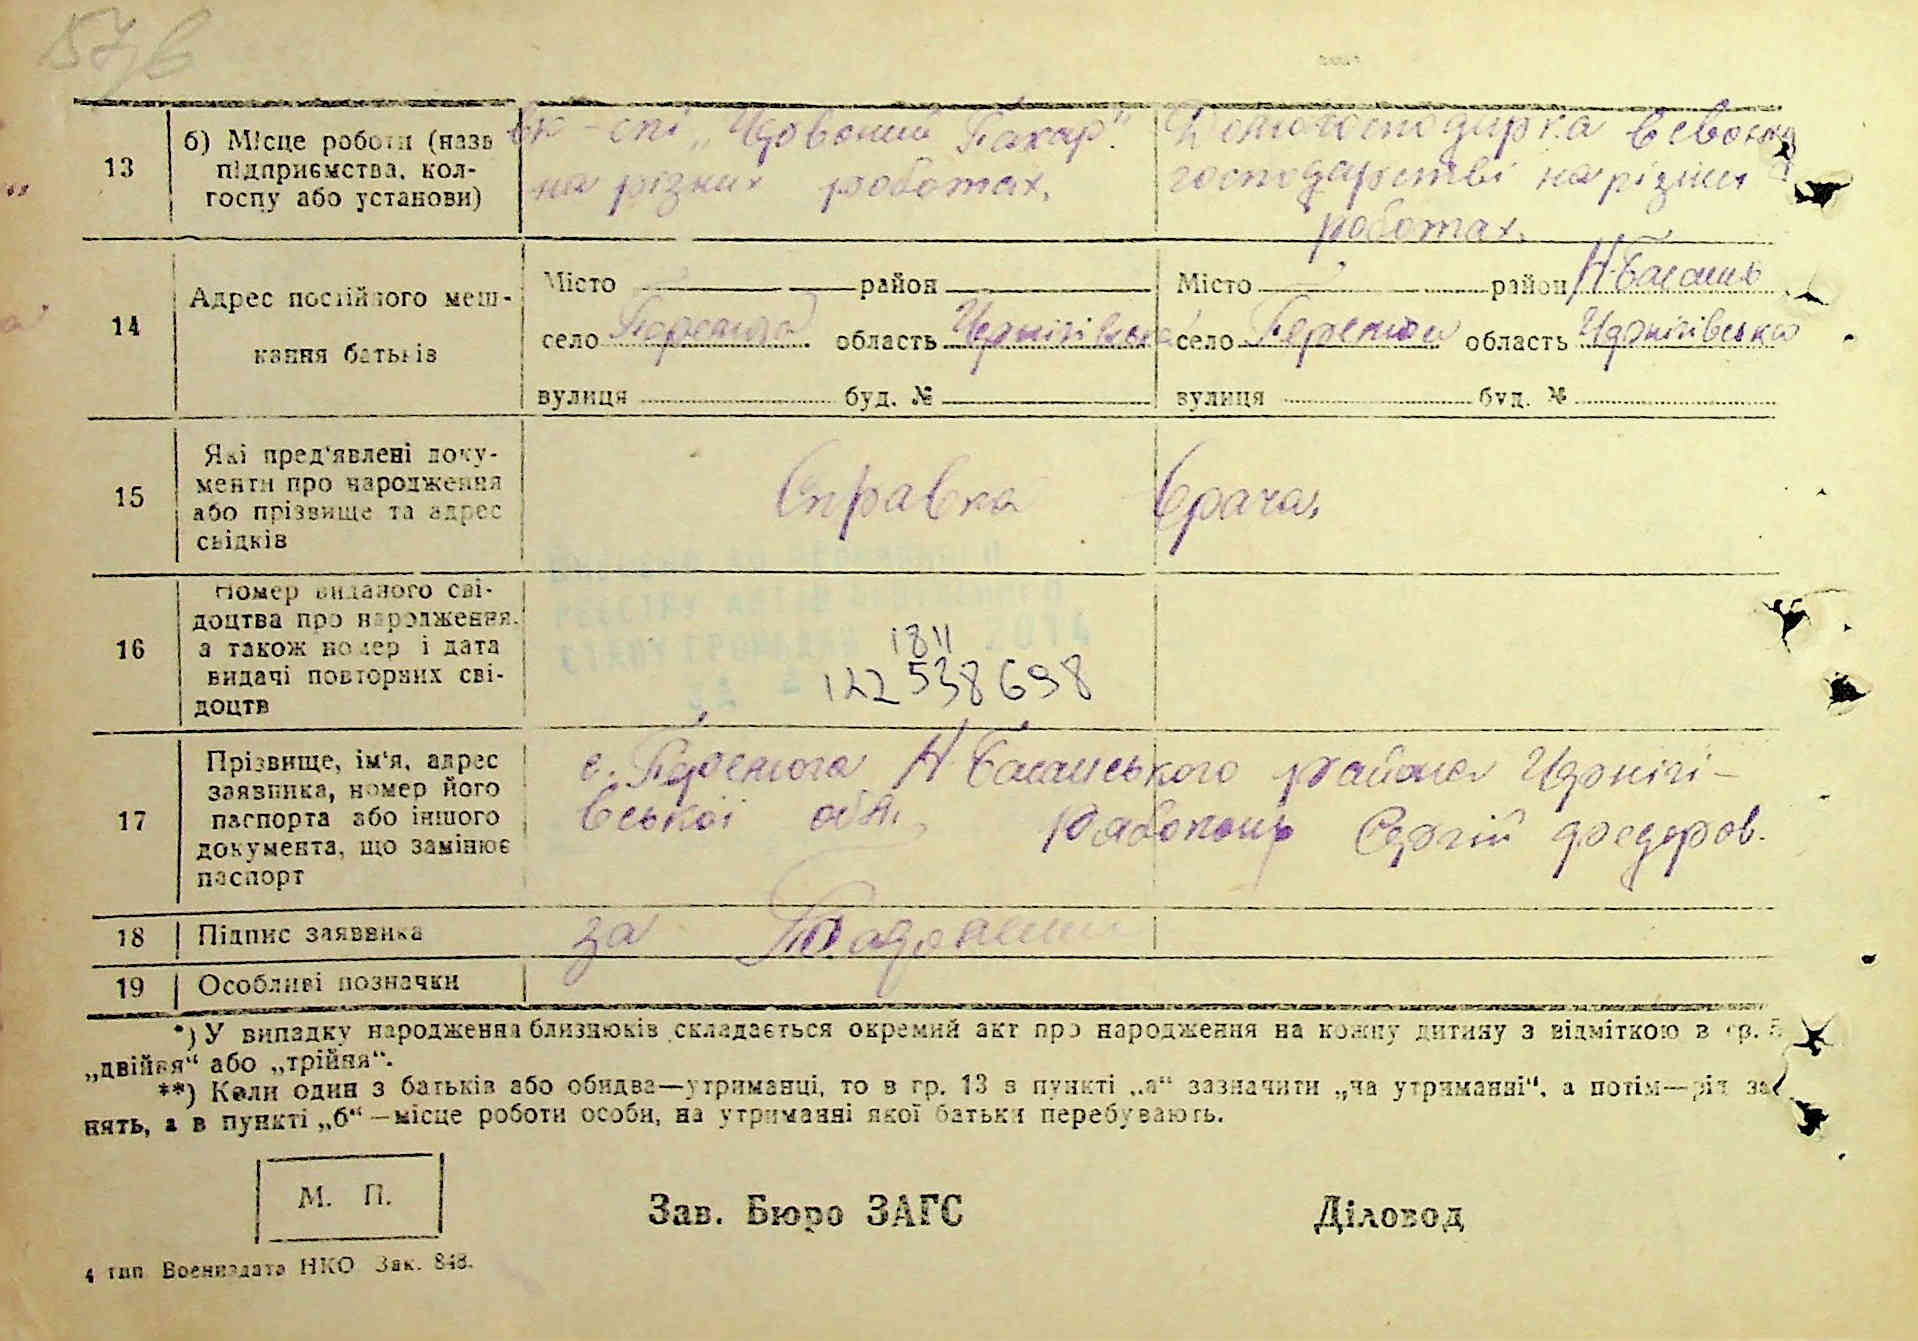 157в
13
б) Місце роботи (назв
підприємства, кол-
госпу або установи)
„Червоний Пахар".
на різних роботах.
Домогосподарка в своєму
господарстві на різних
роботах.
14
Адрес постійного меш-
кання батьків
Місто район
село Перемога область Чернігівська
вулиця буд. №
Місто район Н-Басань
село Перемога область Чернігівська
вулиця буд. №
15
Які пред'явлені доку-
менти про народження
або прізвище та адрес
свідків
Справка врача.
16
Номер виданого сві-
доцтва про народження,
а також номер і дата
видачі повторних сві-
доцтв
РЕЄСТРУ АКТІВ ЦИВІЛЬНОГО
СТАНУ ГРОМАДЯН 2014
1811
122538698
17
Прізвище, ім'я, адрес
заявника, номер його
паспорта або іншого
документа, що замінює
паспорт
с. Перемога Н-Басанського района Чернігі-
вської обл., Рябоконь Сергій Федоров.
18
Підпис заяввика
за
19
Особливі позначки
*) У випадку народження близнюків складається окремий акт про народження на кожну дитину з відміткою в гр. 5
„двійня“ або „трійня“.
**) Коли один з батьків або обидва—утриманці, то в гр. 13 в пункті „а“ зазначити „на утриманні“, а потім—рід за-
нять, а в пункті „б“—місце роботи особи, на утриманні якої батьки перебувають.
М. П.
Зав. Бюро ЗАГС
Діловод
4 тип Воениздата НКО Зак. 848.